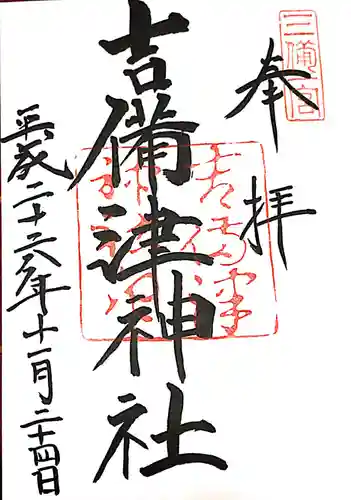 三備一宮
奉拝
吉備津神社
平成二十六年十一月二十四日